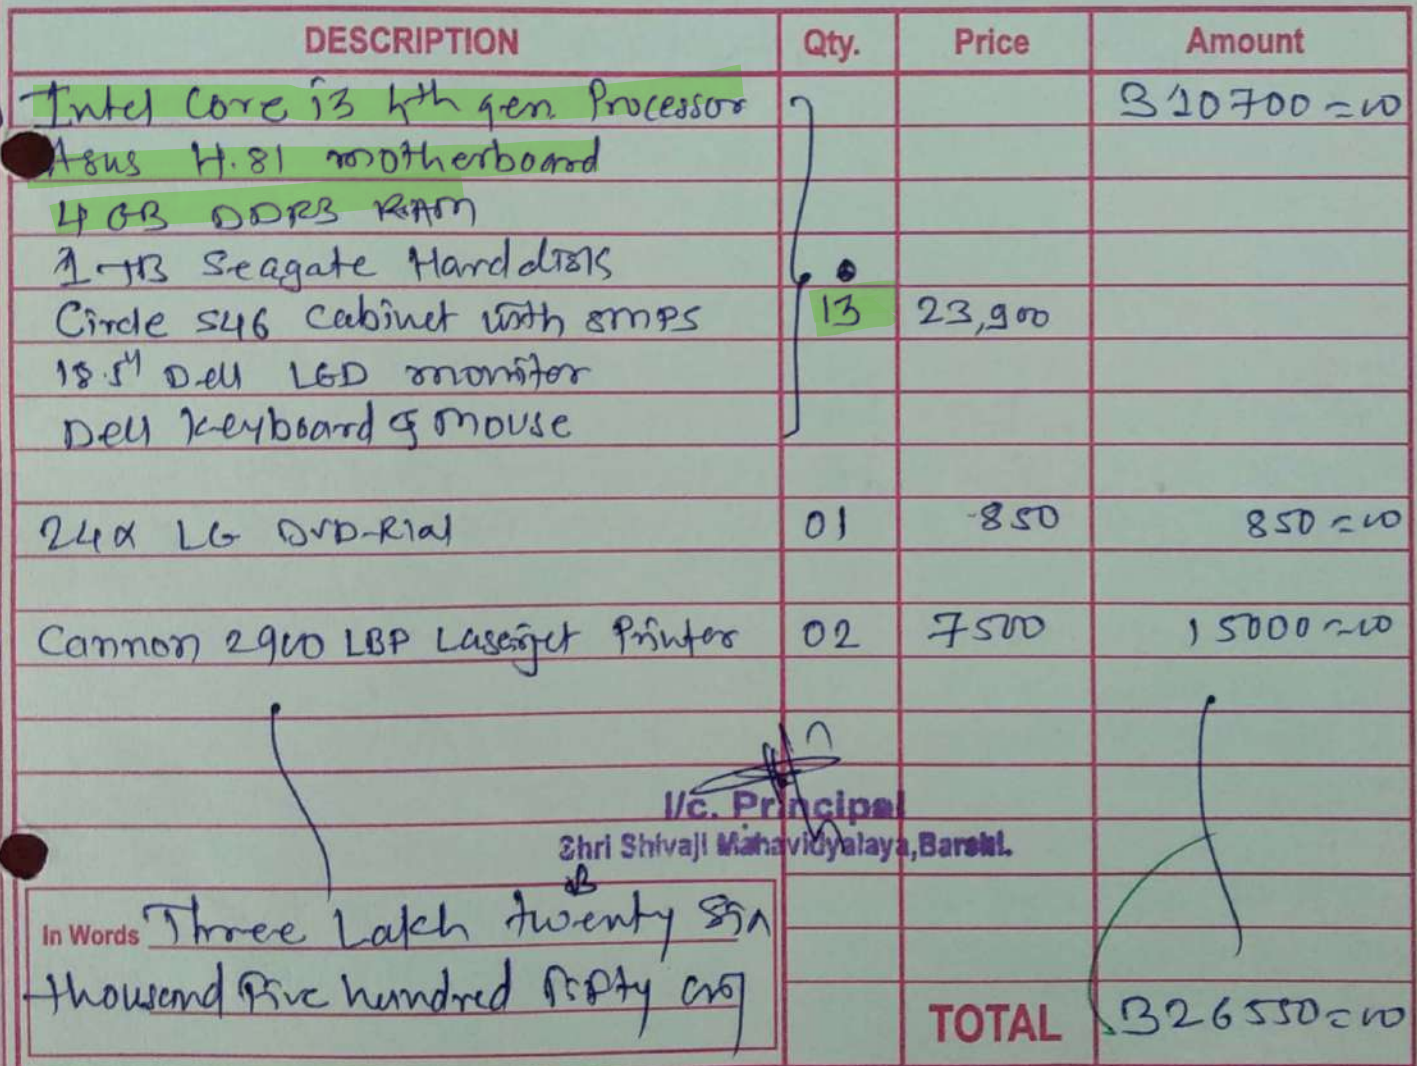 DESCRIPTION Qty. Price Amount
Intel Core i3 4th gen Processor 310700=00
Asus H.81 motherboard
4 GB DDR3 RAM
1 TB Seagate Hard disk
Circle 546 Cabinet with SMPS 13 23,900
18.5" Dell LED monitor
Dell Keyboard & mouse
24x LG DVD-RW 01 850 850=00
Cannon 2900 LBP Laserjet Printer 02 7500 15000=00
I/c. Principal
Shri Shivaji Mahavidyalaya,Barshi.
In Words Three Lakh twenty Six
thousand Five hundred Fifty only
TOTAL 326550=00